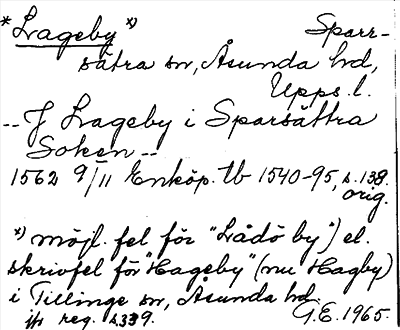 * Lageby *) Sparr-
sätra sn, Åsunda hd,
Upps. l.
-- J Lageby i Sparsättra
Soken --
1562 9/11 Enköp. tb 1540-95, s. 138.
orig.
*) möjl. fel för "Lådö by") el.
skrivfel för "Hageby" (nu Hagby)
i Tillinge sn, Åsunda hd.
jfr reg. s. 339. G.E. 1965.